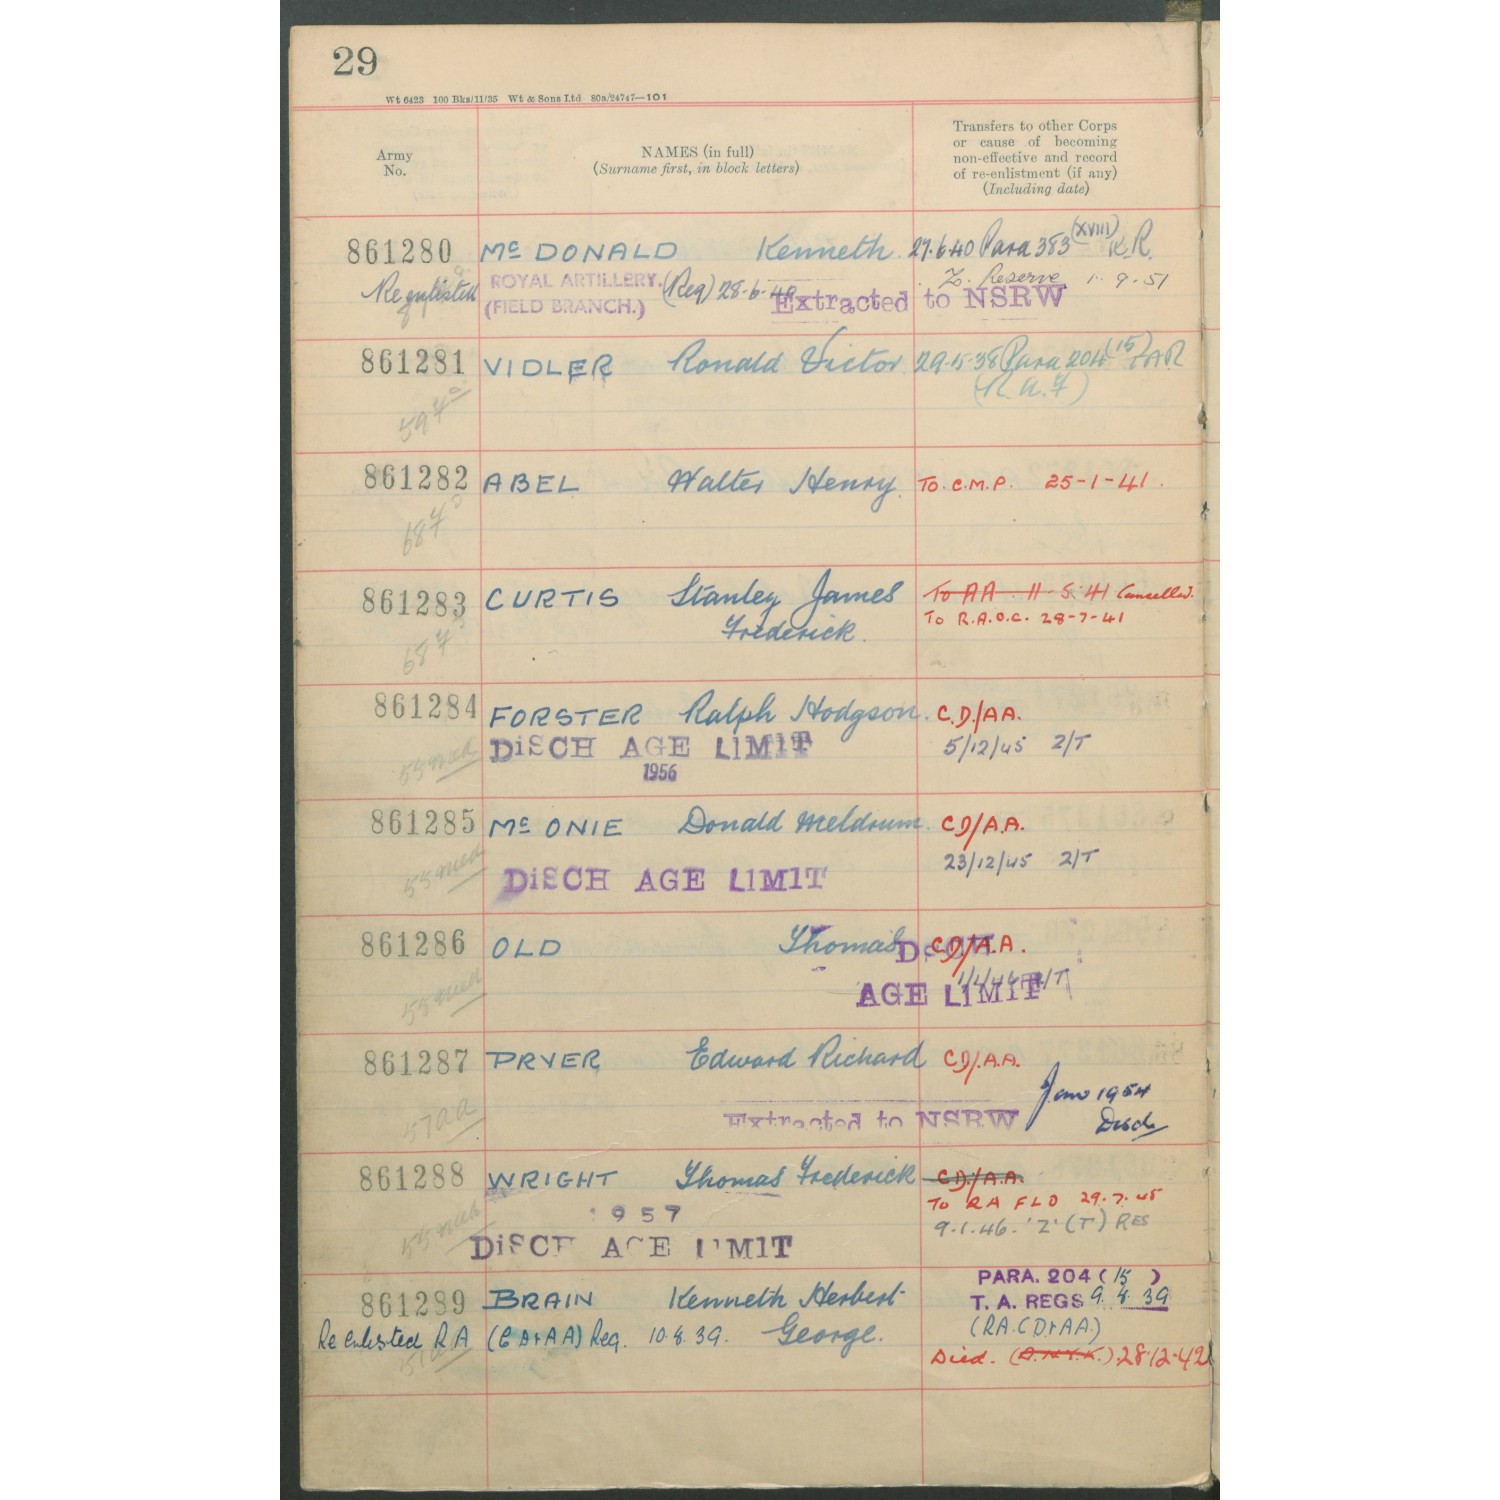 29
Wt 6423 100 Bks/11/35 Wt & Sons Ltd 80a/24747—101
Army
No.
NAMES (in full)
(Surname first, in block letters)
Transfers to other Corps
or cause of becoming
non-effective and record
of re-enlistment (if any)
(Including date)
861280 McDONALD Kenneth. 27.6.40 Para 383 (XVIII) K.R.
ROYAL ARTILLERY. (Reg) 28.6.40 Z. Reserve 1.9.51
(FIELD BRANCH.) Extracted to NSRW
861281 VIDLER Ronald Victor 29.5.38 Para 204 (15) TAR
(R.A.F)
861282 ABEL Walter Henry. To C.M.P. 25-1-41.
861283 CURTIS Stanley James To AA. 11.5.41 Cancelled.
Frederick. To R.A.O.C. 28-7-41
861284 FORSTER Ralph Hodgson. C.D./A.A.
DISCH AGE LIMIT 5/12/45 2/T
1956
861285 McONIE Donald Meldrum. CD/A.A.
55 med 23/12/45 2/T
DISCH AGE LIMIT
861286 OLD Thomas CD/A.A.
DISCH
AGE LIMIT
861287 PRYER Edward Richard CD/.A.A.
57 aa Jan 1954
Extracted to NSRW Disch
861288 WRIGHT Thomas Frederick CD/A.A.
To RA FLD 29.7.45
1957 9.1.46. 'Z' (T) RES
DISCH AGE LIMIT
861289 BRAIN Kenneth Herbert PARA. 204 (15)
George. T. A. REGS 9.4.39
Re enlisted RA (CD+AA) Reg. 10.8.39. (RA.CD+AA)
Died. 28.12.42